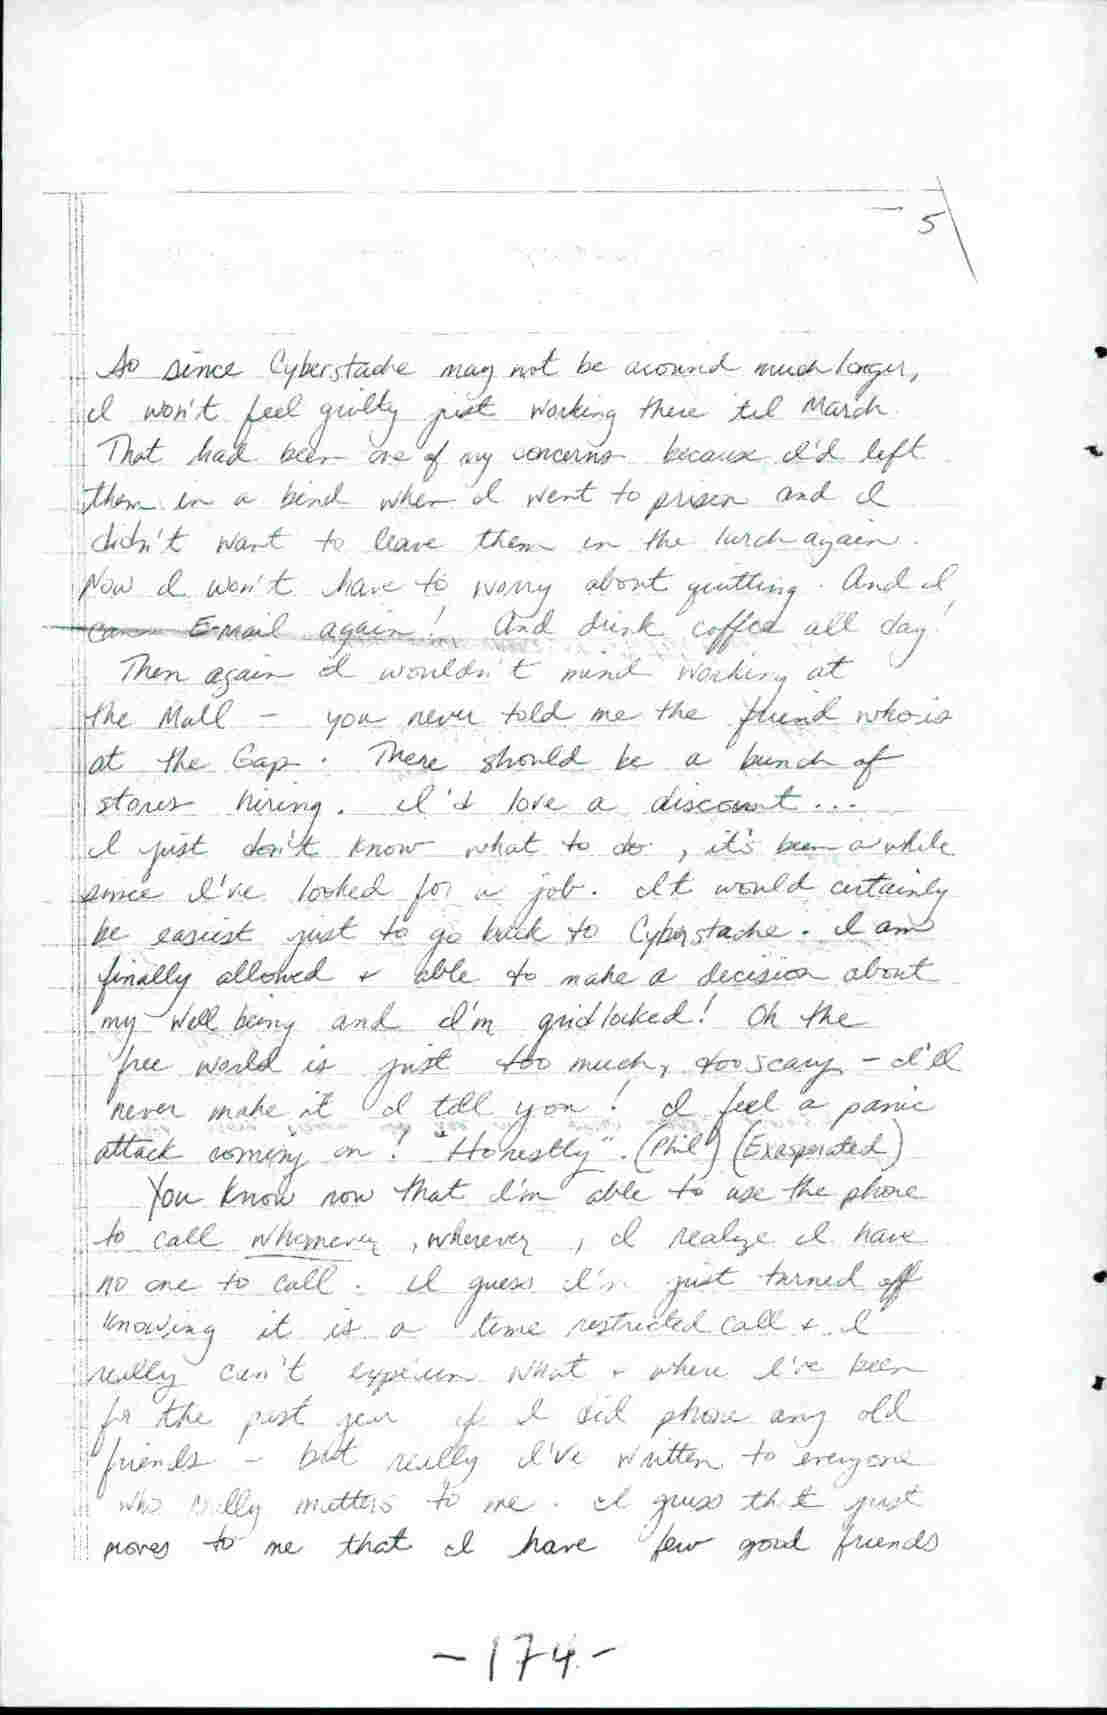 5
So since Cyberstache may not be around much longer,
I won't feel guilty just working there 'til March.
That had been one of my concerns because I'd left
them in a bind when I went to prison and I
didn't want to leave them in the lurch again.
Now I won't have to worry about quitting. And I
can E-mail again! And drink coffee all day!
Then again I wouldn't mind working at
the Mall - you never told me the friend who is
at the Gap. There should be a bunch of
stores hiring. I'd love a discount...
I just don't know what to do, it's been a while
since I've looked for a job. It would certainly
be easiest just to go back to Cyberstache. I am
finally allowed + able to make a decision about
my well being and I'm gridlocked! Oh the
free world is just too much, too scary - I'll
never make it I tell you! I feel a panic
attack coming on! "Honestly". (Phil) (Exasperated)
You know now that I'm able to use the phone
to call whomever, wherever, I realize I have
no one to call. I guess I'm just turned off
knowing it is a time restricted call + I
really can't explain what + where I've been
for the past year if I did phone any old
friends - but really I've written to everyone
who really matters to me. I guess that just
proves to me that I have few good friends
-174-